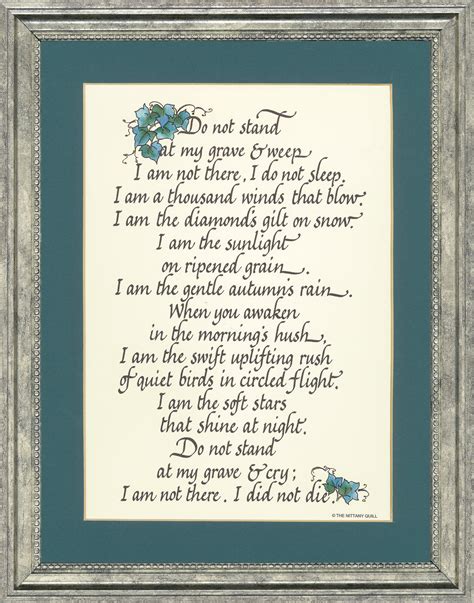 Do not stand
at my grave & weep
I am not there. I do not sleep.
I am a thousand winds that blow.
I am the diamond's gilt on snow.
I am the sunlight
on ripened grain.
I am the gentle autumn's rain.
When you awaken
in the morning's hush,
I am the swift uplifting rush
of quiet birds in circled flight.
I am the soft stars
that shine at night.
Do not stand
at my grave & cry;
I am not there. I did not die.
© THE NITTANY QUILL